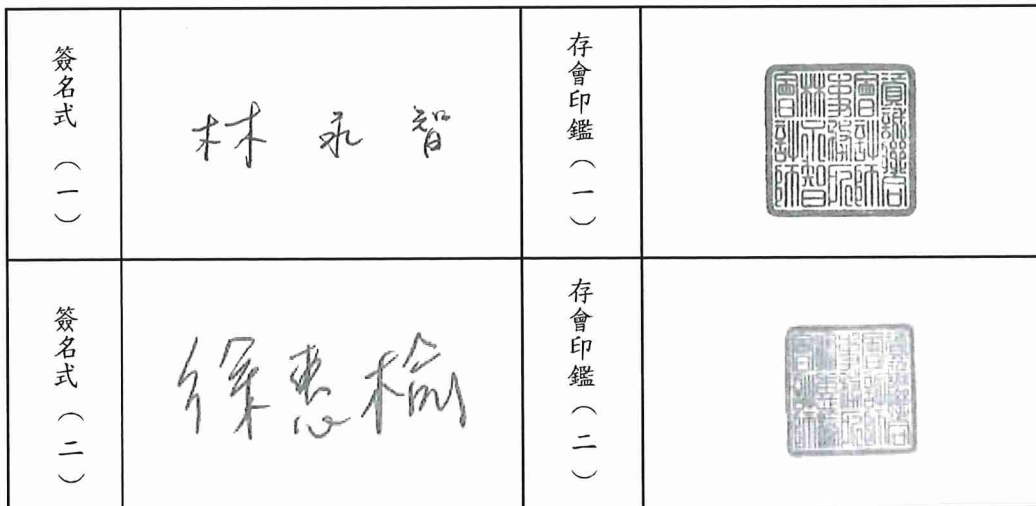 簽名式（一）
林永智
存會印鑑（一）
資誠聯合
會計師
事務所
林永智
會計師
簽名式（二）
徐惠榆
存會印鑑（二）